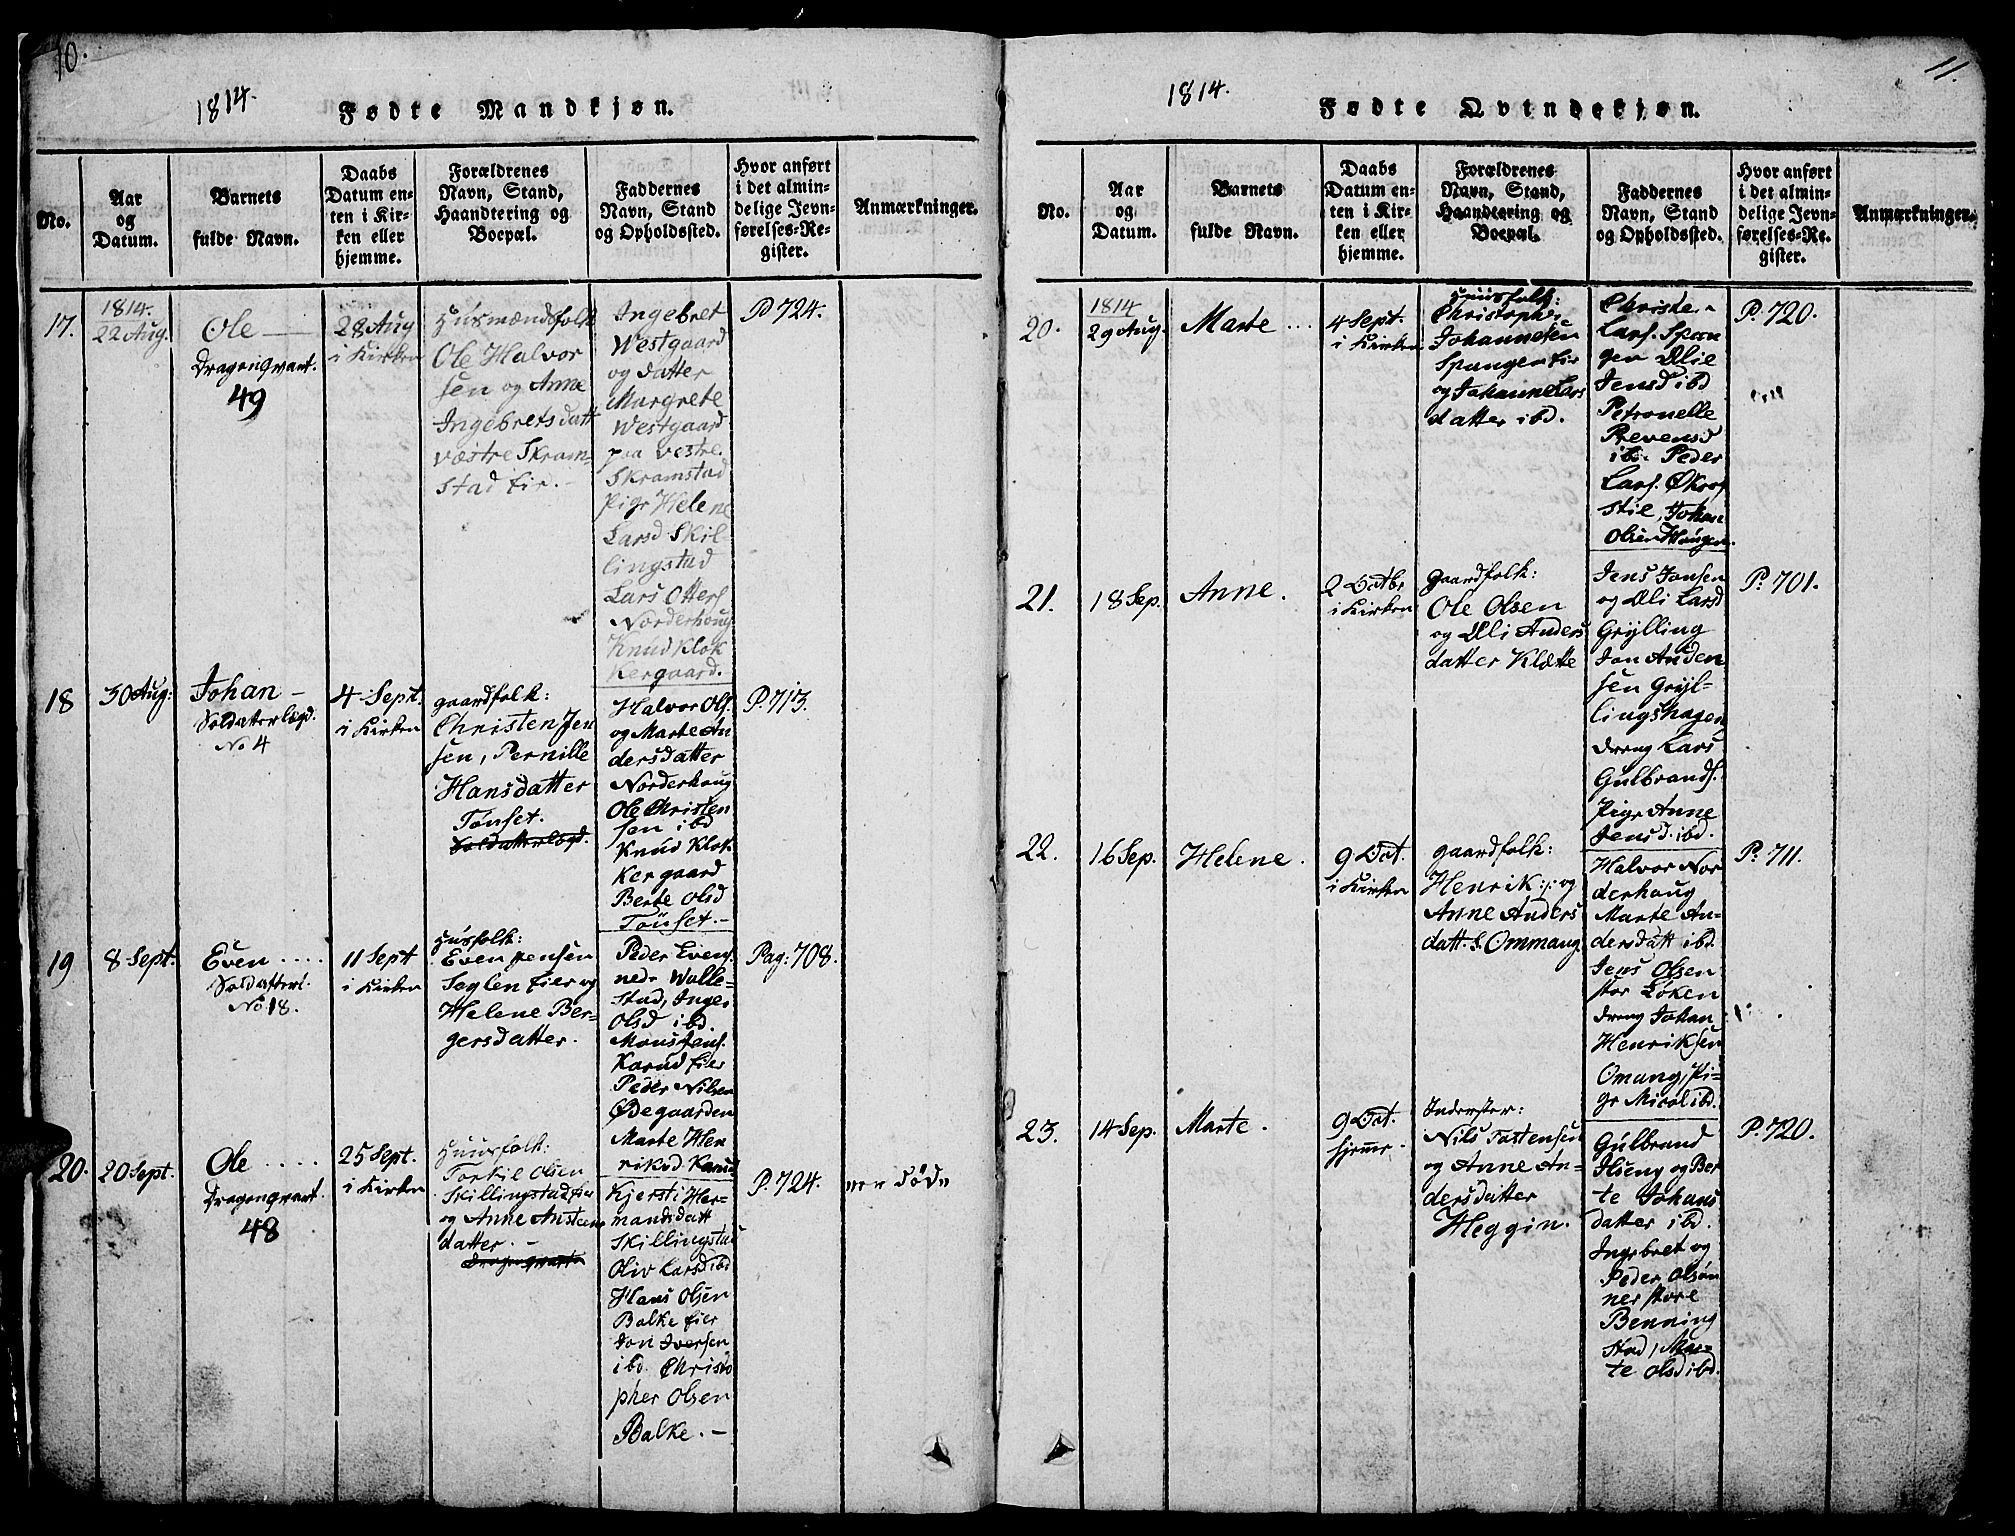 10.
1814.
Fødte Mandkjøn.
No.
Aar
og
Datum.
Barnets
fulde Navn.
Daabs
Datum en-
ten i Kir-
ken eller
hjemme.
Forældrenes
Navn, Stand,
Haandtering og
Boepæl.
Faddernes
Navn, Stand
og Opholdssted.
Hvor anført
i det almin-
delige Jevn-
førelses-Re-
gister.
Anmærkninger.
17.
1814.
22 Aug.
Ole
Dragonqvart.
49
28 Aug
i Kirken
Husmændsfolk
Ole Halvor
sen og Anne
Ingebretsdatt
væstre Skram-
stad Eir.
Ingebret
Westgaard
og datter
Margrete
Westgaard
paa vestre
Skramstad
Pige Helene
Larsd Skil-
lingstad
Lars Otters
Norderhoug
Knud Klok
kergaard.
P 724.
18
30 Aug:
Johan -
Soldaterlægd.
No 4
4 Sept.
i Kirken
gaardfolk:
Christen Jen
sen, Pernille
Hansdatter
Tønset.
Soldatterlægd.
Halvor Ols.
og Marte An
dersdatter
Norderhoug
Ole Christen
sen ibd
Knud Klok
kergaard
Berte Olsd
Tønset. -
P. 713.
19
8 Sept.
Even ....
Soldatterl.
No 18.
11 Sept
i Kirken
Husfolk:
Even Jensen
Seglen Eier og
Helene Ber-
gersdatter.
Peder Evens.
nedr Walle-
stad, Inger
Olsd ibd.
Mons Jens.
Karud Eier
Peder Nilsen
Ødegaarden
Marte Hen
riksd. Karud
Pag: 708.
20.
20 Sept.
Ole ....
Dragonqvart.
48
25 Sept.
i Kirken
Huusfolk:
Torkil Olsen
Skillingstad Eier
og Anne Austens
datter. -
Dragonqvarte
Kjersti Her-
mandsdatt
Skillingstad
Oliv Larsd ibd
Hans Olsen
Balke Eier
Jon Iversen
ibd. Christo
pher Olsen
Balke. -
P. 724.
død
11.
1814.
Fødte Qvindekjøn.
No.
Aar
og
Datum.
Barnets
fulde Navn.
Daabs
Datum en-
ten i Kir-
ken eller
hjemme.
Forældrenes
Navn, Stand,
Haandtering og
Boepæl.
Faddernes
Navn, Stand
og Opholdssted.
Hvor anført
i det almin-
delige Jevn-
førelses-Re-
gister.
Anmærkninger.
20.
1814
29 Aug.
Marte ...
4 Sept.
i Kirken
Huusfolk:
Christopher
Johannesen
Spangen Eir
og Johanne Lars
datter ibd.
Christen
Lars. Span
gen Olie
Jensd ibd
Petronelle
Prevensd
ibd. Peder
Lars.
Johan
Olsen Haugen.
P. 720.
21.
18 Sep.
Anne.
2 Octbr
i Kirken
gaardfolk:
Ole Olsen
og Eli Anders
datter Klætte
Jens Jonsen
og Eli Larsd
Grylling
Jon Anden
sen Gryl-
lingshagen
dreng Lars
Gulbrands.
Pige Anne
Jensd. ibd.
P. 701.
22.
16 Sep.
Helene.
9 Oct.
i Kirken
gaardfolk:
Henrik og
Anne Anders
datt. S. Ommang
Halvor Nor
derhaug
Marte An-
dersdatt ibd.
Jens Olsen
stor Løken
dreng Johan
Henriksen
Omang, Pi-
ge Micol ibd.
P. 711.
23.
14 Sep.
Marte.
9 Oct.
hjemme.
Inderster:
Nils Tostensen
og Anne An-
dersdatter
Heggin.
Gulbrand
Ilseng og Ber
te Johans
datter ibd.
Ingebret og
Peder Olsøn
ner store
Benning
stad, Mar-
te Olsd ibd.
P. 720.